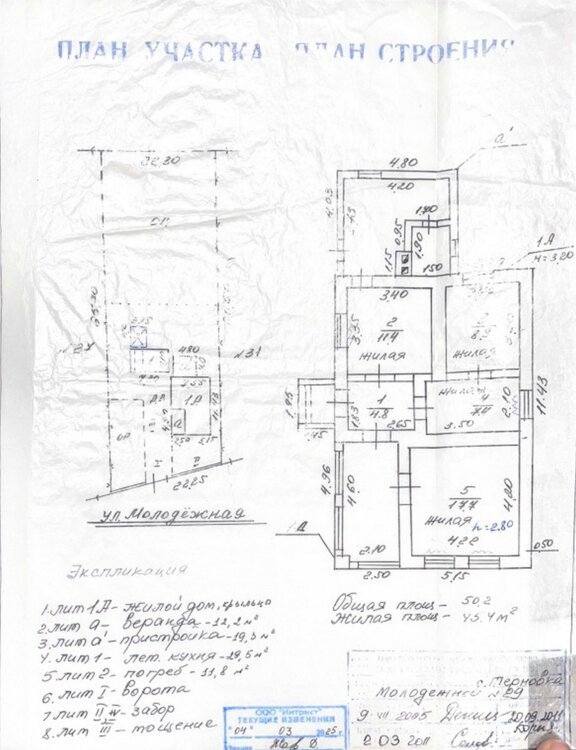 ПЛАН УЧАСТКА ПЛАН СТРОЕНИЯ
22.30
4.80
4.20
а'
4.03
1.70
0.95
1.90
1.15
1.50
1А
н=3.20
3.40
2
11.4
жилая
3.35
жилая
4.80
№31
1А
1
4.8
1.83
2.65
жилая
4
7.4
3.50
2.10
11.43
1.95
1.45
2.50
5.15
22.25
ул. Молодёжная
4.96
4.60
2.10
2.50
5
17.7
жилая
h=2.80
4.20
4.22
5.15
0.50
Экспликация
1. лит 1А - жилой дом, крыльцо
2. лит а - веранда - 12,2 м²
3. лит а' - пристройка - 19,3 м²
4. лит 1 - лет. кухня - 19,5 м²
5. лит 2 - погреб - 11,8 м²
6. лит I - ворота
7 лит II IV - забор
8. лит III - мощение
Общая площ - 50,2
Жилая площ - 45.4 м²
с. Терновка
Молодежная № 29
9 VII 2005
20.09.2011
2 03 2011
ООО "Интрист"
ТЕКУЩИЕ ИЗМЕНЕНИЯ
"04" 03 2025 г.